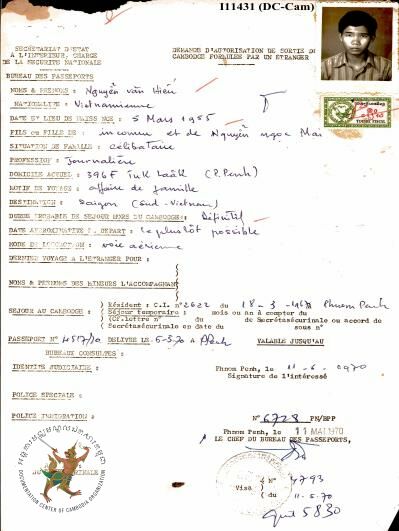 111431 (DC-Cam)
SECRETARIAT D'ETAT
A L'INTERIEUR, CHARGE
DE LA SECURITE NATIONALE
BUREAU DES PASSEPORTS
DEMANDE D'AUTORISATION DE SORTIE DU
CAMBODGE FORMULEE PAR UN ETRANGER
NOMS & PRENOMS : Nguyễn văn Hiếu
NATIONALITE : Vietnamienne
DATE ET LIEU DE NAISSANCE : 5 Mars 1955
FILS ou FILLE DE : inconnu et de Nguyễn ngọc Mai
SITUATION DE FAMILLE : célibataire
PROFESSION : Journalière
DOMICILE ACTUEL : 396F Tuk Laàk (P.Penh)
MOTIF DE VOYAGE : affaire de famille
DESTINATION : Saigon (Sud-Vietnam)
DUREE PROBABLE DE SEJOUR HORS DU CAMBODGE : Définitif
DATE APPROXIMATIVE DE DEPART : le plus tôt possible
MODE DE LOCOMOTION : voie aérienne
DERNIER VOYAGE A L'ETRANGER POUR :
NOMS & PRENOMS DES MINEURS L'ACCOMPAGNANT
SEJOUR AU CAMBODGE :
Résident : C.I. n° 2622 du 18-3-1967 Phnom Penh
Séjour temporaire : mois ou an à compter du
Cf. lettre n° du de Secrétasécurinale ou accord de
Secrétasécurinale en date du sous n°
PASSEPORT N° DELIVRE LE 5-5-70 à PPenh
VALABLE JUSQU'AU
BUREAUX CONSULTES :
IDENTITE JUDICIAIRE :
Phnom Penh, le 11-6-1970
Signature de l'intéressé
POLICE SPECIALE :
POLICE IMMIGRATION :
N° 6728 PN/BPP
Phnom Penh, le 11 MAI 1970
LE CHEF DU BUREAU DES PASSEPORTS,
Visa
N° 4793
du 11-5-70
5830
DOCUMENTATION CENTER OF CAMBODIA ORGANIZATION